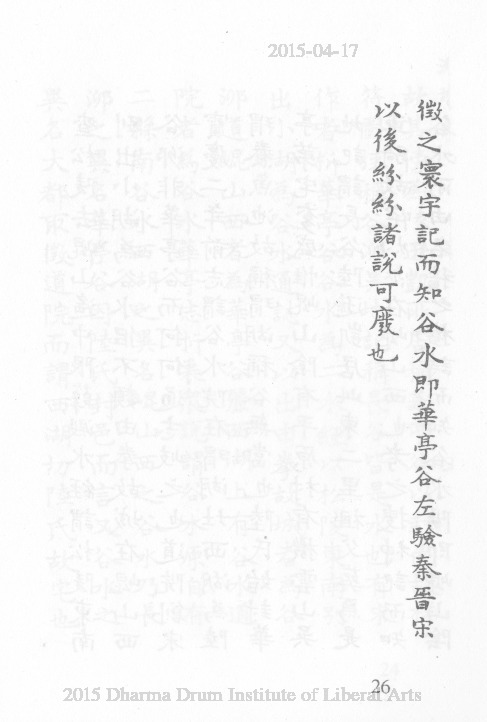 2015-04-17
徵之寰宇記而知谷水即華亭谷左驗秦晉宋
以後紛紛諸說可廢也
26
2015 Dharma Drum Institute of Liberal Arts